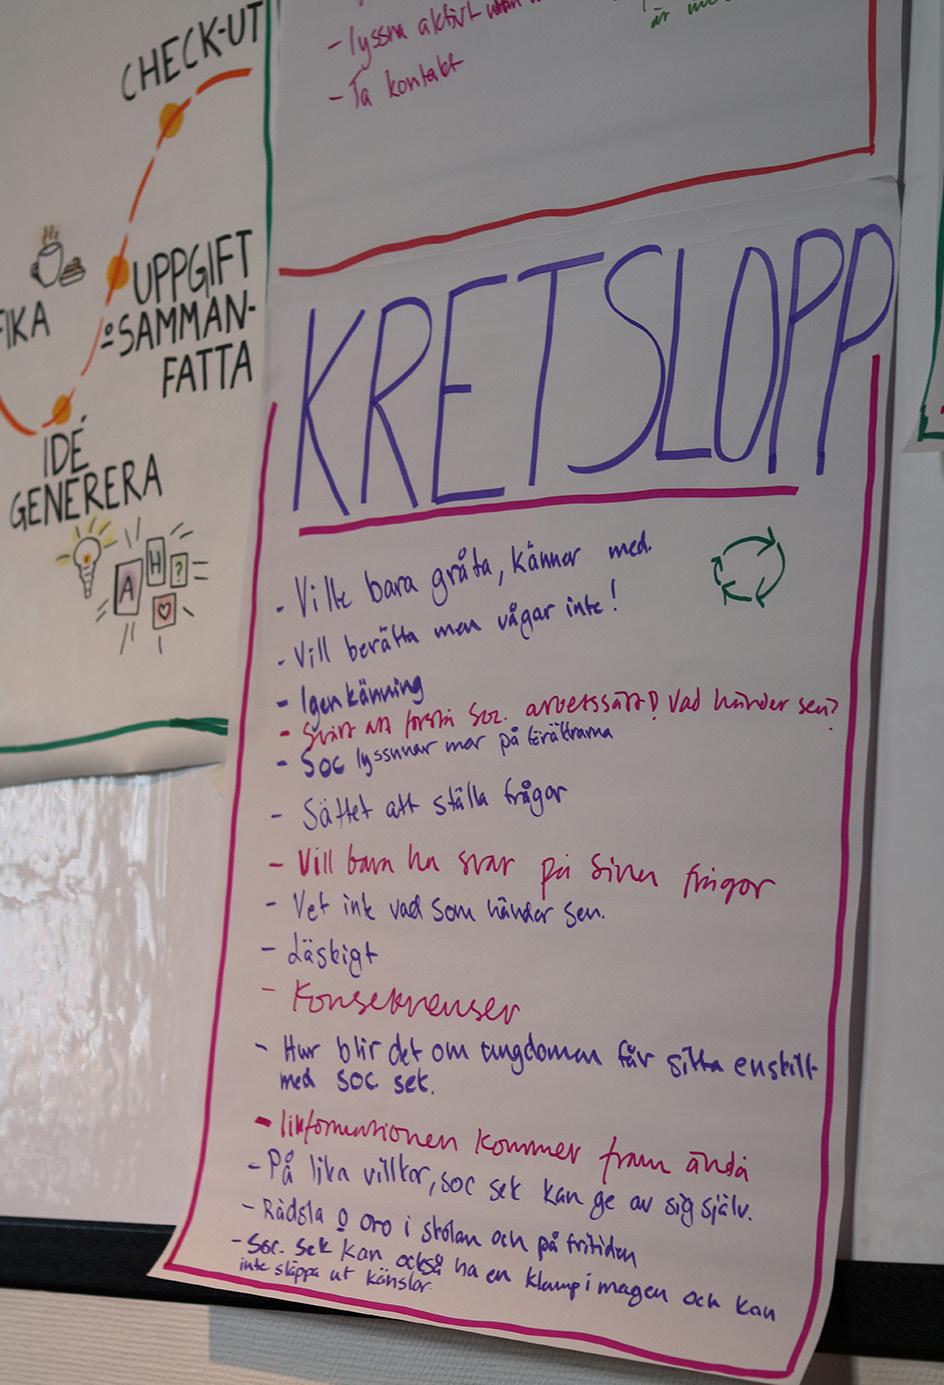 CHECK-UT
FIKA
UPPGIFT
o SAMMAN-
FATTA
IDÉ
GENERERA
A H ?
- lyssna aktivt utan
- Ta kontakt
är
KRETSLOPP
- Ville bara gråta, känner med.
- Vill berätta men vågar inte!
- Igenkänning
- Svårt att förstå Soc. arbetssätt! Vad händer sen?
- Soc lyssnar mer på föräldrarna
- Sättet att ställa frågor
- Vill bara ha svar på sina frågor
- Vet inte vad som händer sen.
- Läskigt
- Konsekvenser
- Hur blir det om ungdomen får sitta enskilt
med soc sek.
- Informationen kommer fram ändå
- På lika villkor, soc sek kan ge av sig själv.
- Rädsla o oro i skolan och på fritiden
- Soc. sek kan också ha en klump i magen och kan
inte släppa ut känslor.